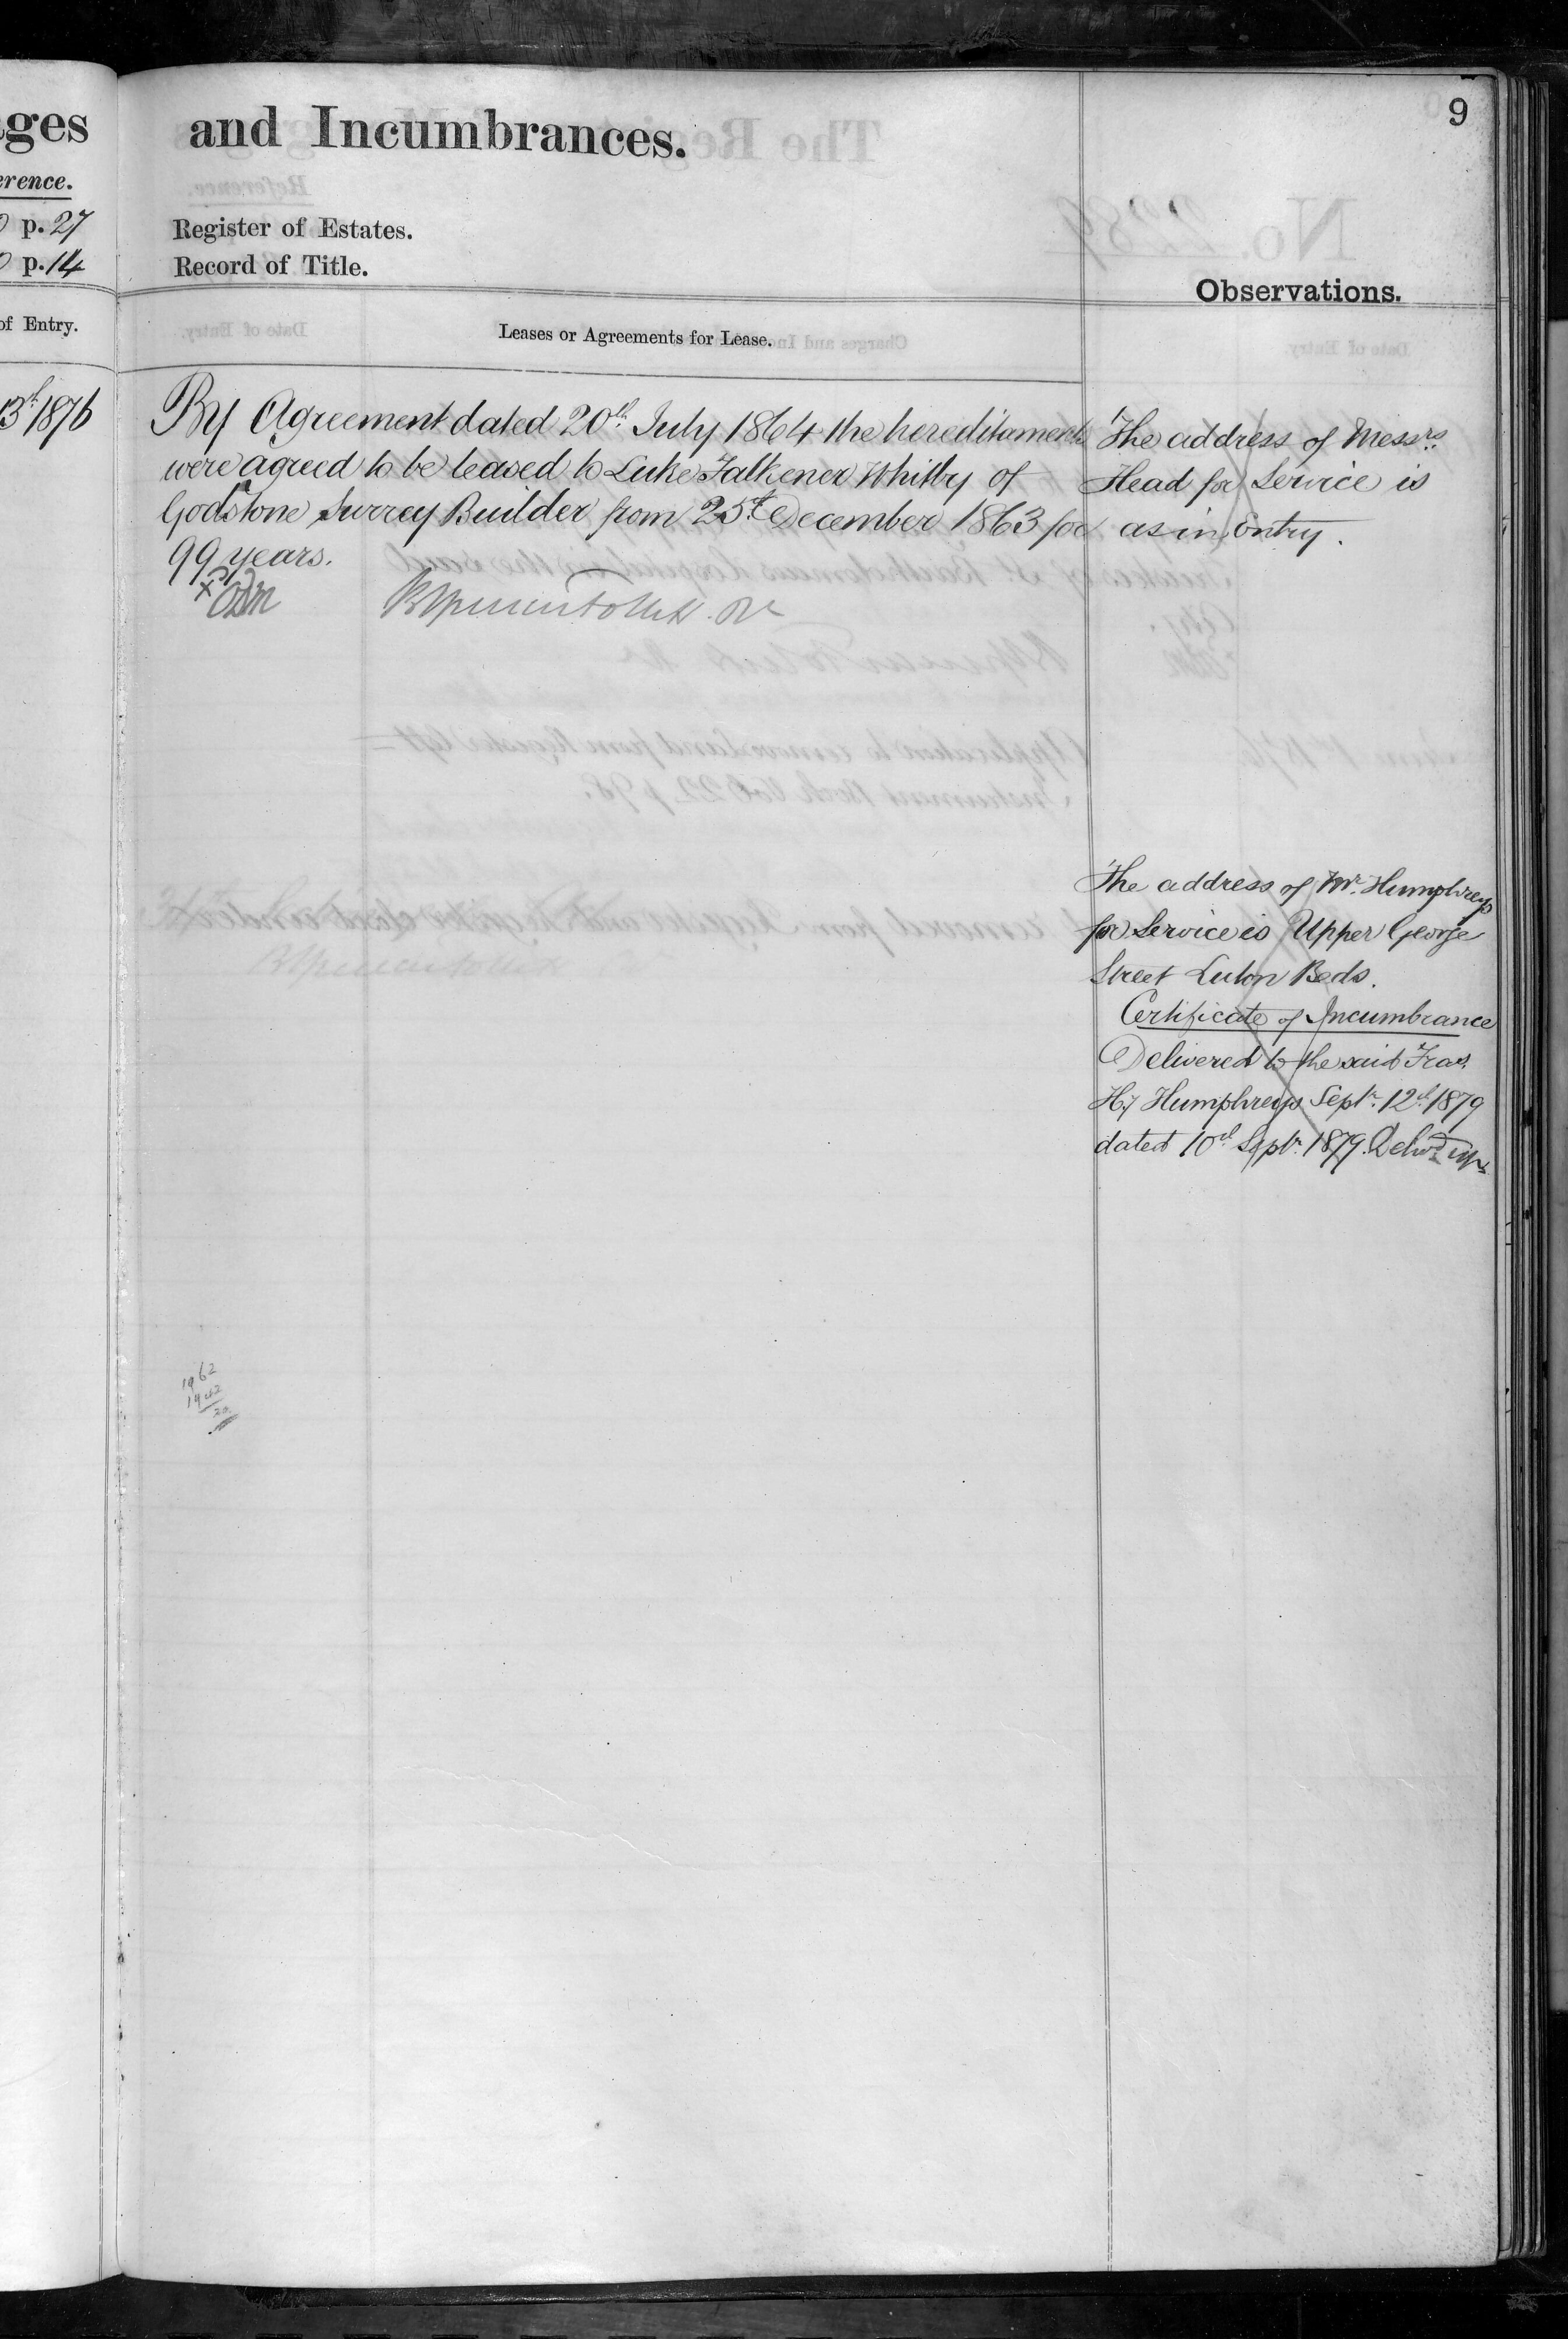 ages
erence.
p. 27
p. 14
of Entry.
13th 1876
9
and Incumbrances.
Register of Estates.
Record of Title.
Observations.
Leases or Agreements for Lease.
By Agreement dated 20th July 1864 the hereditaments
were agreed to be leased to Luke Falkener Whitby of
Godstone Surrey Builder from 25th December 1863 for
99 years.
The address of Messrs
Head for Service is
as in Entry.
The address of Mr. Humphreys
for Service is Upper George
Street Luton Beds.
Certificate of Incumbrance
Delivered to the said Fras.
Hy Humphreys Septr. 12th 1879
dated 10th Septr. 1879. Delivd up
1962
1942
20